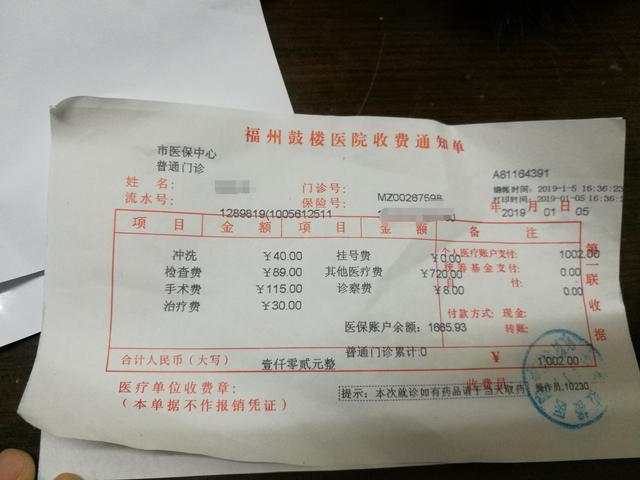 福州鼓楼医院收费通知单
市医保中心
普通门诊
A81164391
姓 名： 门诊号： 结帐时间：2019-1-5 16:36:23
流水号： 保险号： MZ00287598 打印时间：2019-01-05 16:36:2
1289819(1005612511 2019 年 01 月 05 日
项 目 金 额 项 目 金 额 备 注
冲洗 ¥40.00 挂号费 ¥0.00 个人医疗账户支付： 1002.00
检查费 ¥89.00 其他医疗费 ¥720.00 统筹基金支付： 0.00
手术费 ¥115.00 诊察费 ¥8.00 付： 0.00
治疗费 ¥30.00 付款方式：现金：
医保账户余额：1665.93 转账：
普通门诊累计：0
合计人民币（大写） 壹仟零贰元整 ¥ 1,002.00
医疗单位收费章： 收费员
（本单据不作报销凭证） 提示：本次就诊如有药品请于当天取药 操作员:10230
第一联收据